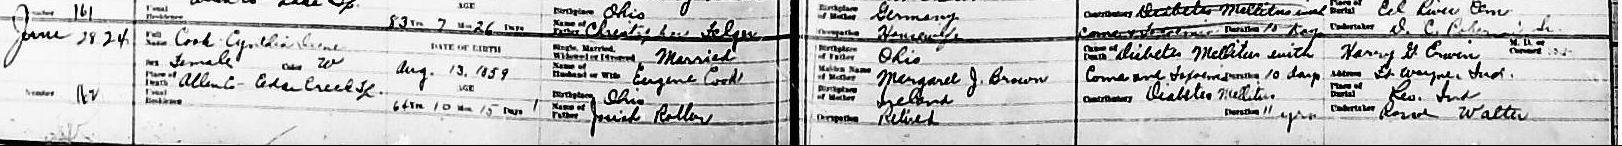 Number 161 Usual Residence AGE 83 Yrs. 7 Mos. 26 Days Birthplace Ohio Name of Father Birthplace of Mother Germany Occupation Housewife Contributory Diabetes Mellitus Duration 10 days Place of Burial Eel River Cem Undertaker
June 28 24 Full Name Cook Cynthia Irene DATE OF BIRTH Single, Married, Widowed or Divorced Married Birthplace of Father Ohio Cause of Death Diabetes Mellitus with Harry G Erwin M. D. or Coroner
Sex Female Color W Aug. 13, 1859 Name of Husband or Wife Eugene Cook Maiden Name of Mother Margaret J. Brown Coma and Duration 10 days Address Ft Wayne, Ind.
Place of Death Allen Co- Cedar Creek Tp. AGE Birthplace Ohio Birthplace of Mother Ireland Contributory Diabetes Mellitus Place of Burial Leo, Ind
Number 162 Usual Residence 64 Yrs. 10 Mos. 15 Days Name of Father Josiah Occupation Retired Duration 11 yrs Undertaker Walter